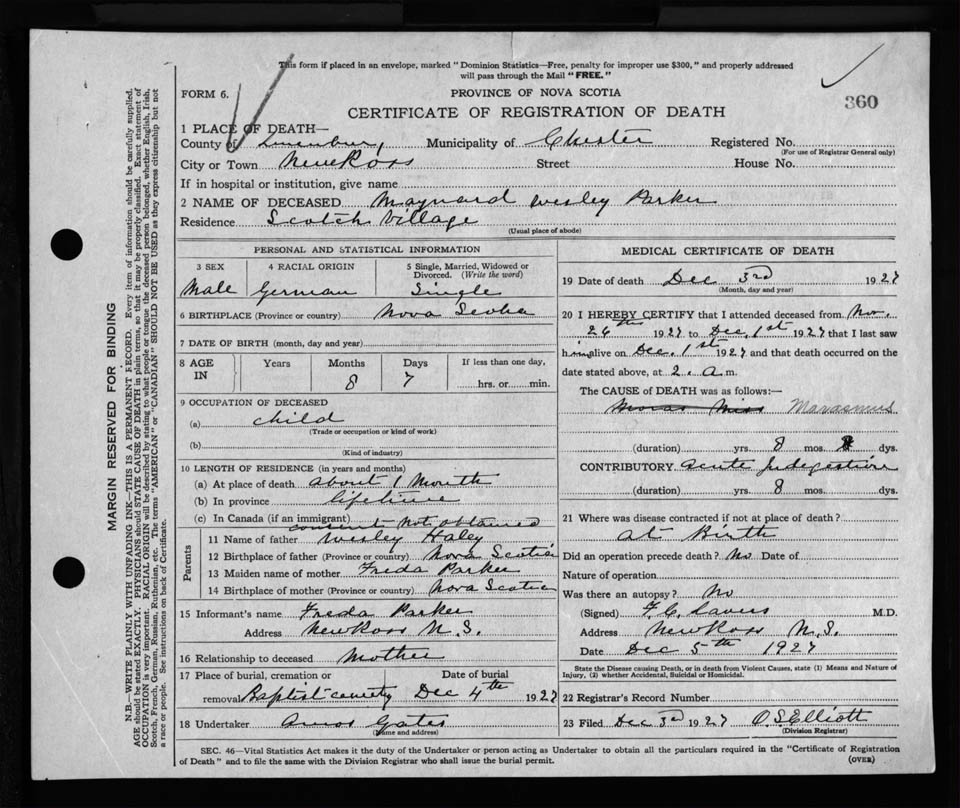 This form if placed in an envelope, marked "Dominion Statistics—Free, penalty for improper use $300," and properly addressed
will pass through the Mail "FREE."
FORM 6. PROVINCE OF NOVA SCOTIA
360
CERTIFICATE OF REGISTRATION OF DEATH
1 PLACE OF DEATH—
County of Lunenburg, Municipality of Chester Registered No.
(For use of Registrar General only)
City or Town New Ross Street House No.
If in hospital or institution, give name
2 NAME OF DECEASED Maynard Wesley Parker
Residence Scotch Village
(Usual place of abode)
PERSONAL AND STATISTICAL INFORMATION
3 SEX 4 RACIAL ORIGIN 5 Single, Married, Widowed or
Divorced. (Write the word)
Male German Single
6 BIRTHPLACE (Province or country) Nova Scotia
7 DATE OF BIRTH (month, day and year)
8 AGE IN Years Months Days If less than one day,
8 7 hrs. or min.
9 OCCUPATION OF DECEASED
(a) child
(Trade or occupation or kind of work)
(b)
(Kind of industry)
10 LENGTH OF RESIDENCE (in years and months)
(a) At place of death about 1 Month
(b) In province lifetime
(c) In Canada (if an immigrant)
consent not obtained
Parents
11 Name of father Wesley Haley
12 Birthplace of father (Province or country) Nova Scotia
13 Maiden name of mother Freda Parker
14 Birthplace of mother (Province or country) Nova Scotia
15 Informant's name Freda Parker
Address New Ross N.S.
16 Relationship to deceased Mother
17 Place of burial, cremation or Date of burial
removal Baptist Dec 4th 1927
18 Undertaker Amos Gates
(Name and address)
MEDICAL CERTIFICATE OF DEATH
19 Date of death Dec 3rd 1927
(Month, day and year)
20 I HEREBY CERTIFY that I attended deceased from Nov.
26th 1927 to Dec. 1st 1927 that I last saw
him alive on Dec. 1st 1927 and that death occurred on the
date stated above, at 2. a.m.
The CAUSE OF DEATH was as follows:—
Marasmus
(duration) yrs. 8 mos. dys.
CONTRIBUTORY Acute Indigestion
(duration) yrs. 8 mos. dys.
21 Where was disease contracted if not at place of death?
at Birth
Did an operation precede death? No Date of
Nature of operation
Was there an autopsy? No
(Signed) F. C. Lavers M.D.
Address New Ross N.S.
Date Dec 5th 1927
State the Disease causing Death, or in death from Violent Causes, state (1) Means and Nature of
Injury, (2) whether Accidental, Suicidal or Homicidal.
22 Registrar's Record Number
23 Filed Dec 3rd 1927 O.S. Elliott
(Division Registrar)
SEC. 46—Vital Statistics Act makes it the duty of the Undertaker or person acting as Undertaker to obtain all the particulars required in the "Certificate of Registration
of Death" and to file the same with the Division Registrar who shall issue the burial permit. (OVER)
MARGIN RESERVED FOR BINDING
N.B.—WRITE PLAINLY WITH UNFADING INK—THIS IS A PERMANENT RECORD. Every item of information should be carefully supplied.
AGE should be stated EXACTLY. PHYSICIANS should STATE CAUSE OF DEATH in plain terms, so that it may be properly classified. Exact statement of
OCCUPATION is very important. RACIAL ORIGIN will be described by stating to what people or tongue the deceased person belonged, whether English, Irish,
Scotch, French, German, Russian, Ruthenian, etc. The terms "AMERICAN" or "CANADIAN" SHOULD NOT BE USED as they express citizenship but not
a race or people. See instructions on back of Certificate.